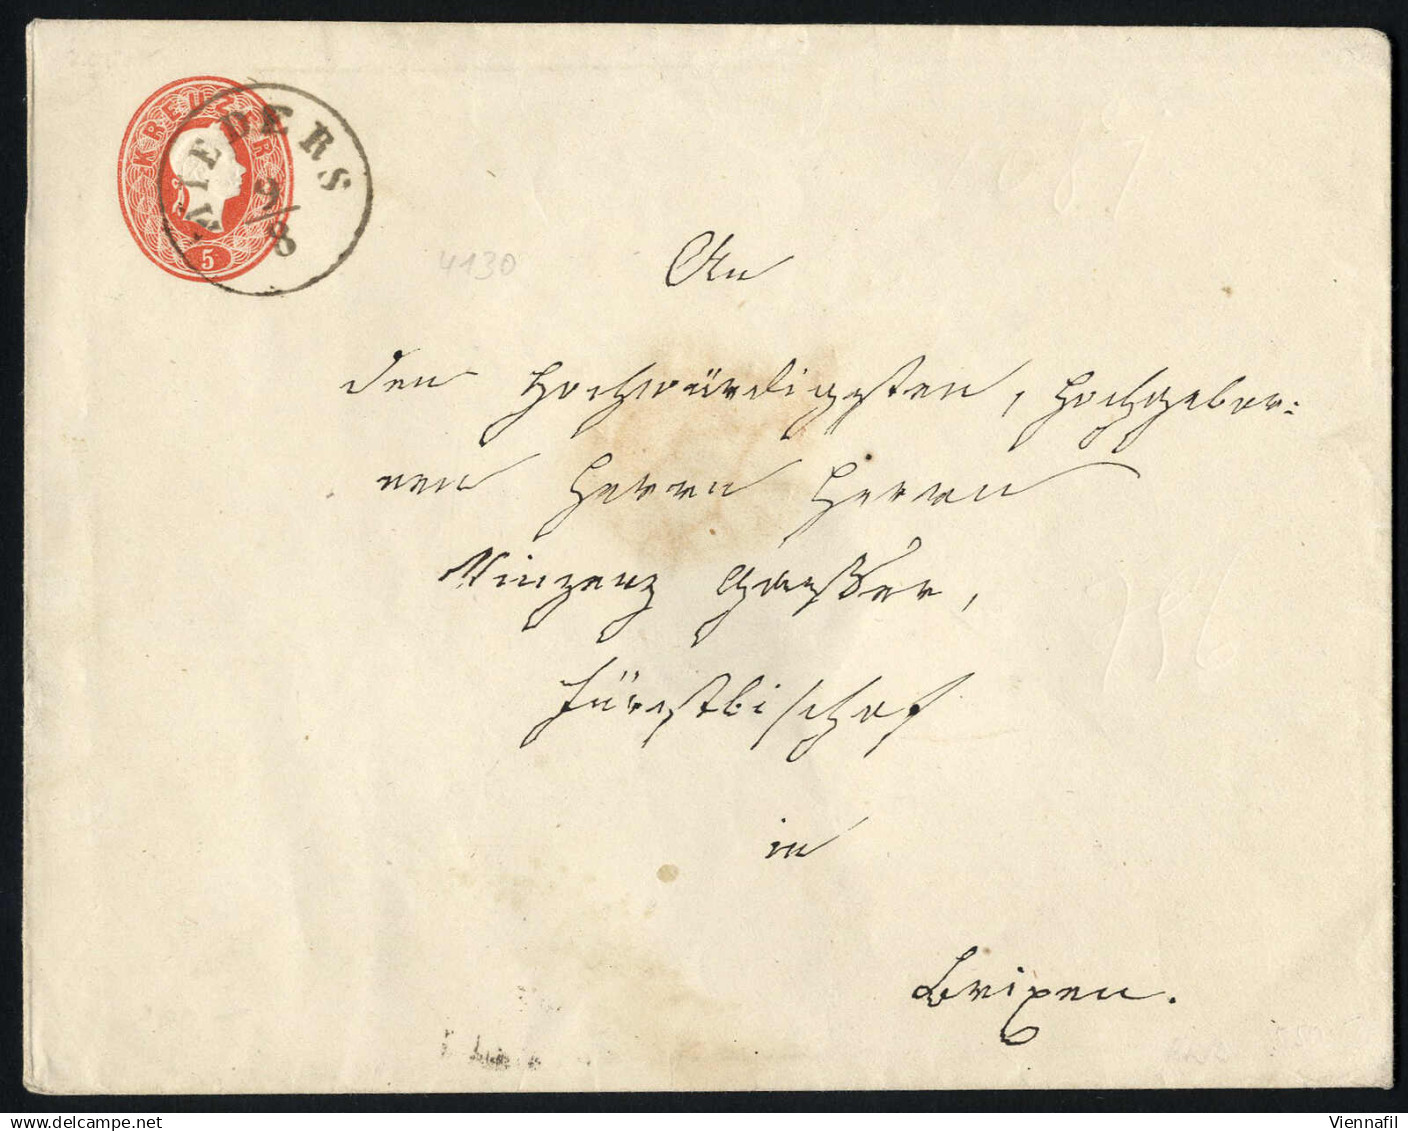 KREUZER
5
MIEDERS
9/8
4130
An
den Hochwürdigsten, Hochgebor:
nen Herrn Herrn
Vinzenz Gasser,
Fürstbischof
in
Brixen.
Viennafil